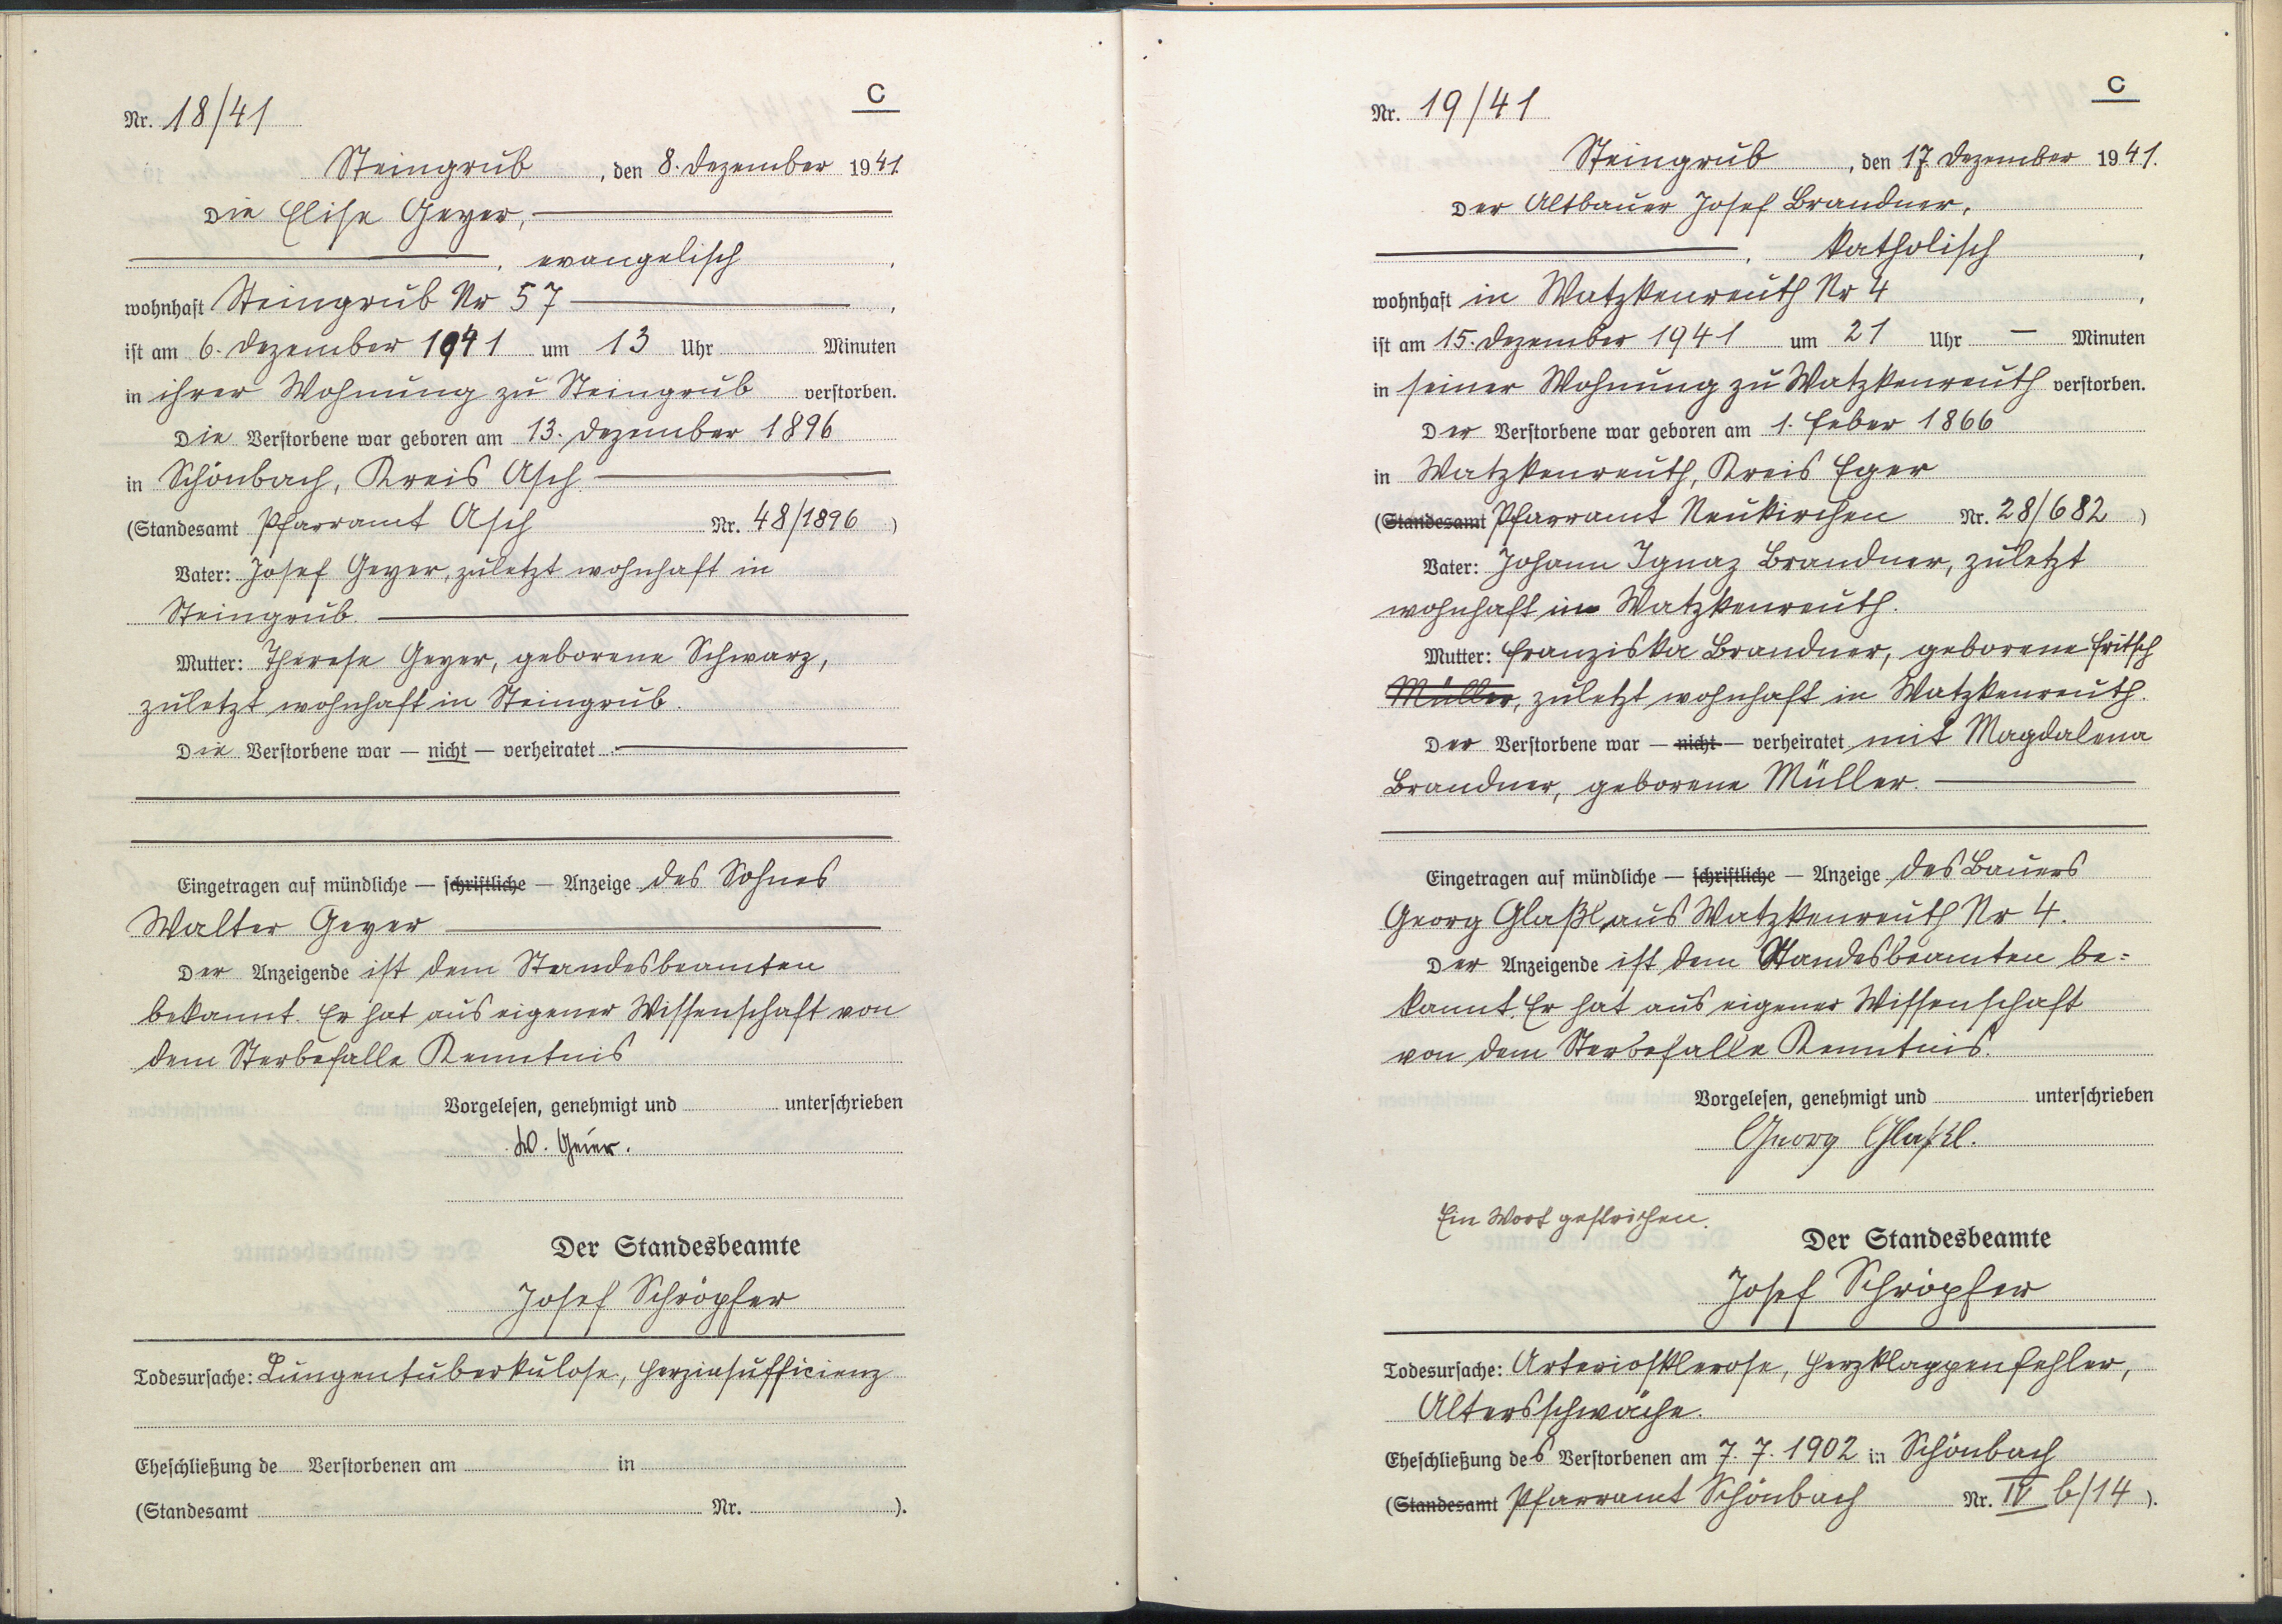 C
Nr. 18/41
Steingrub, den 8. Dezember 1941.
Die Elise Geyer,
, evangelisch,
wohnhaft Steingrub Nr 57,
ist am 6. Dezember 1941 um 13 Uhr Minuten
in ihrer Wohnung zu Steingrub verstorben.
Die Verstorbene war geboren am 13. Dezember 1896
in Schönbach, Kreis Asch
(Standesamt Pfarramt Asch Nr. 48/1896)
Vater: Josef Geyer, zuletzt wohnhaft in
Steingrub.
Mutter: Therese Geyer, geborene Schwarz,
zuletzt wohnhaft in Steingrub.
Die Verstorbene war — nicht — verheiratet
Eingetragen auf mündliche — schriftliche — Anzeige des Sohnes
Walter Geyer
Der Anzeigende ist dem Standesbeamten
bekannt. Er hat aus eigener Wissenschaft von
dem Sterbefalle Kenntnis
Vorgelesen, genehmigt und unterschrieben
W. Geier.
Der Standesbeamte
Josef Schröpfer
Todesursache: Lungentuberkulose, Herzinsufficienz
Eheschließung de Verstorbenen am in
(Standesamt Nr. ).
C
Nr. 19/41
Steingrub, den 17. Dezember 1941.
Der Altbauer Josef Brandner,
, katholisch,
wohnhaft in Watzkenreuth Nr 4,
ist am 15. Dezember 1941 um 21 Uhr — Minuten
in seiner Wohnung zu Watzkenreuth verstorben.
Der Verstorbene war geboren am 1. Feber 1866
in Watzkenreuth, Kreis Eger
(Standesamt Pfarramt Neukirchen Nr. 28/682)
Vater: Johann Ignaz Brandner, zuletzt
wohnhaft in Watzkenreuth.
Mutter: Franziska Brandner, geborene Fritsch
Müller, zuletzt wohnhaft in Watzkenreuth.
Der Verstorbene war — nicht — verheiratet mit Magdalena
Brandner, geborene Müller.
Eingetragen auf mündliche — schriftliche — Anzeige des Bauers
Georg Glaßl aus Watzkenreuth Nr 4.
Der Anzeigende ist dem Standesbeamten be=
kannt. Er hat aus eigener Wissenschaft
von dem Sterbefalle Kenntnis.
Vorgelesen, genehmigt und unterschrieben
Georg Glaßl.
Ein Wort gestrichen.
Der Standesbeamte
Josef Schröpfer
Todesursache: Arteriosklerose, Herzklappenfehler,
Altersschwäche.
Eheschließung des Verstorbenen am 7. 7. 1902 in Schönbach
(Standesamt Pfarramt Schönbach Nr. IV b/14).